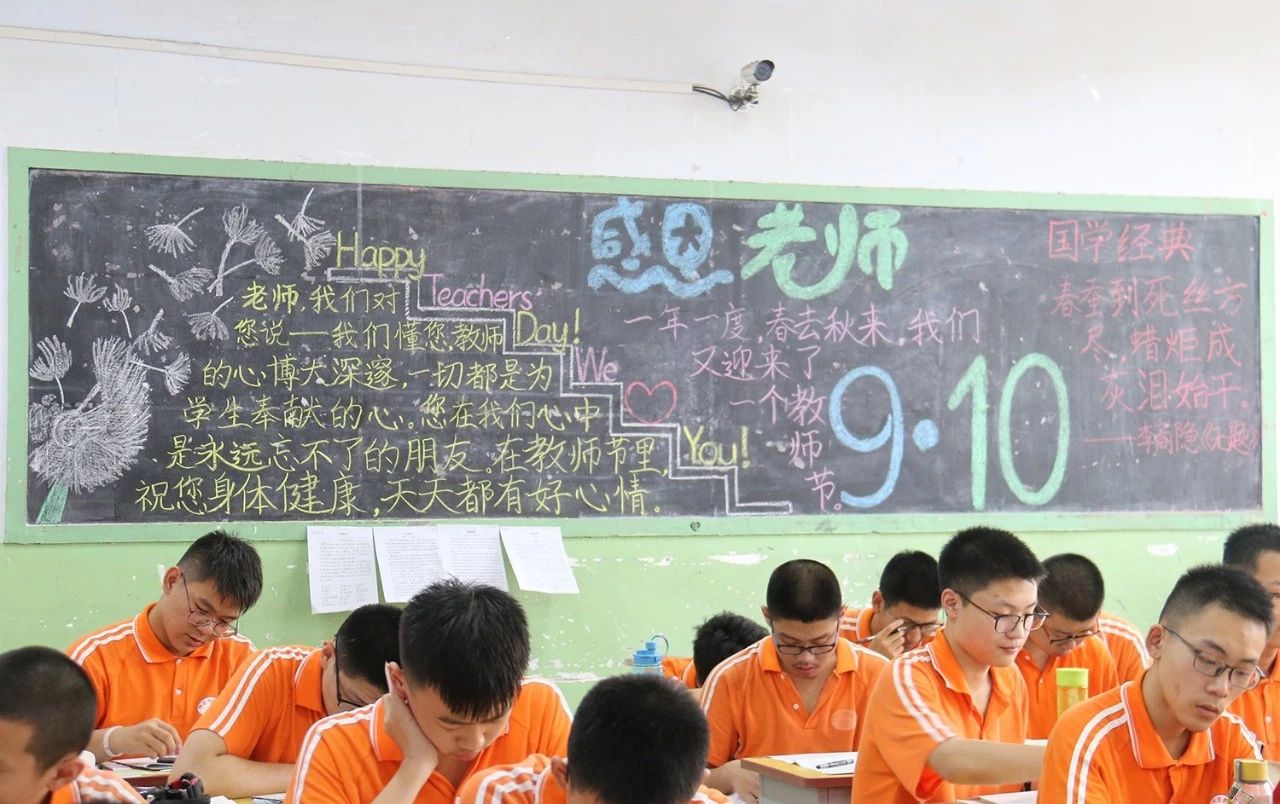 Happy
Teachers'
Day!
We
You!
老师,我们对
您说——我们懂您.教师
的心博大深邃,一切都是为
学生奉献的心。您在我们心中
是永远忘不了的朋友。在教师节里,
祝您身体健康,天天都有好心情。
感恩老师
一年一度,春去秋来,我们
又迎来了
一个教
师
节。
9·10
国学经典
春蚕到死丝方
尽,蜡炬成
灰泪始干。
——李商隐《无题》